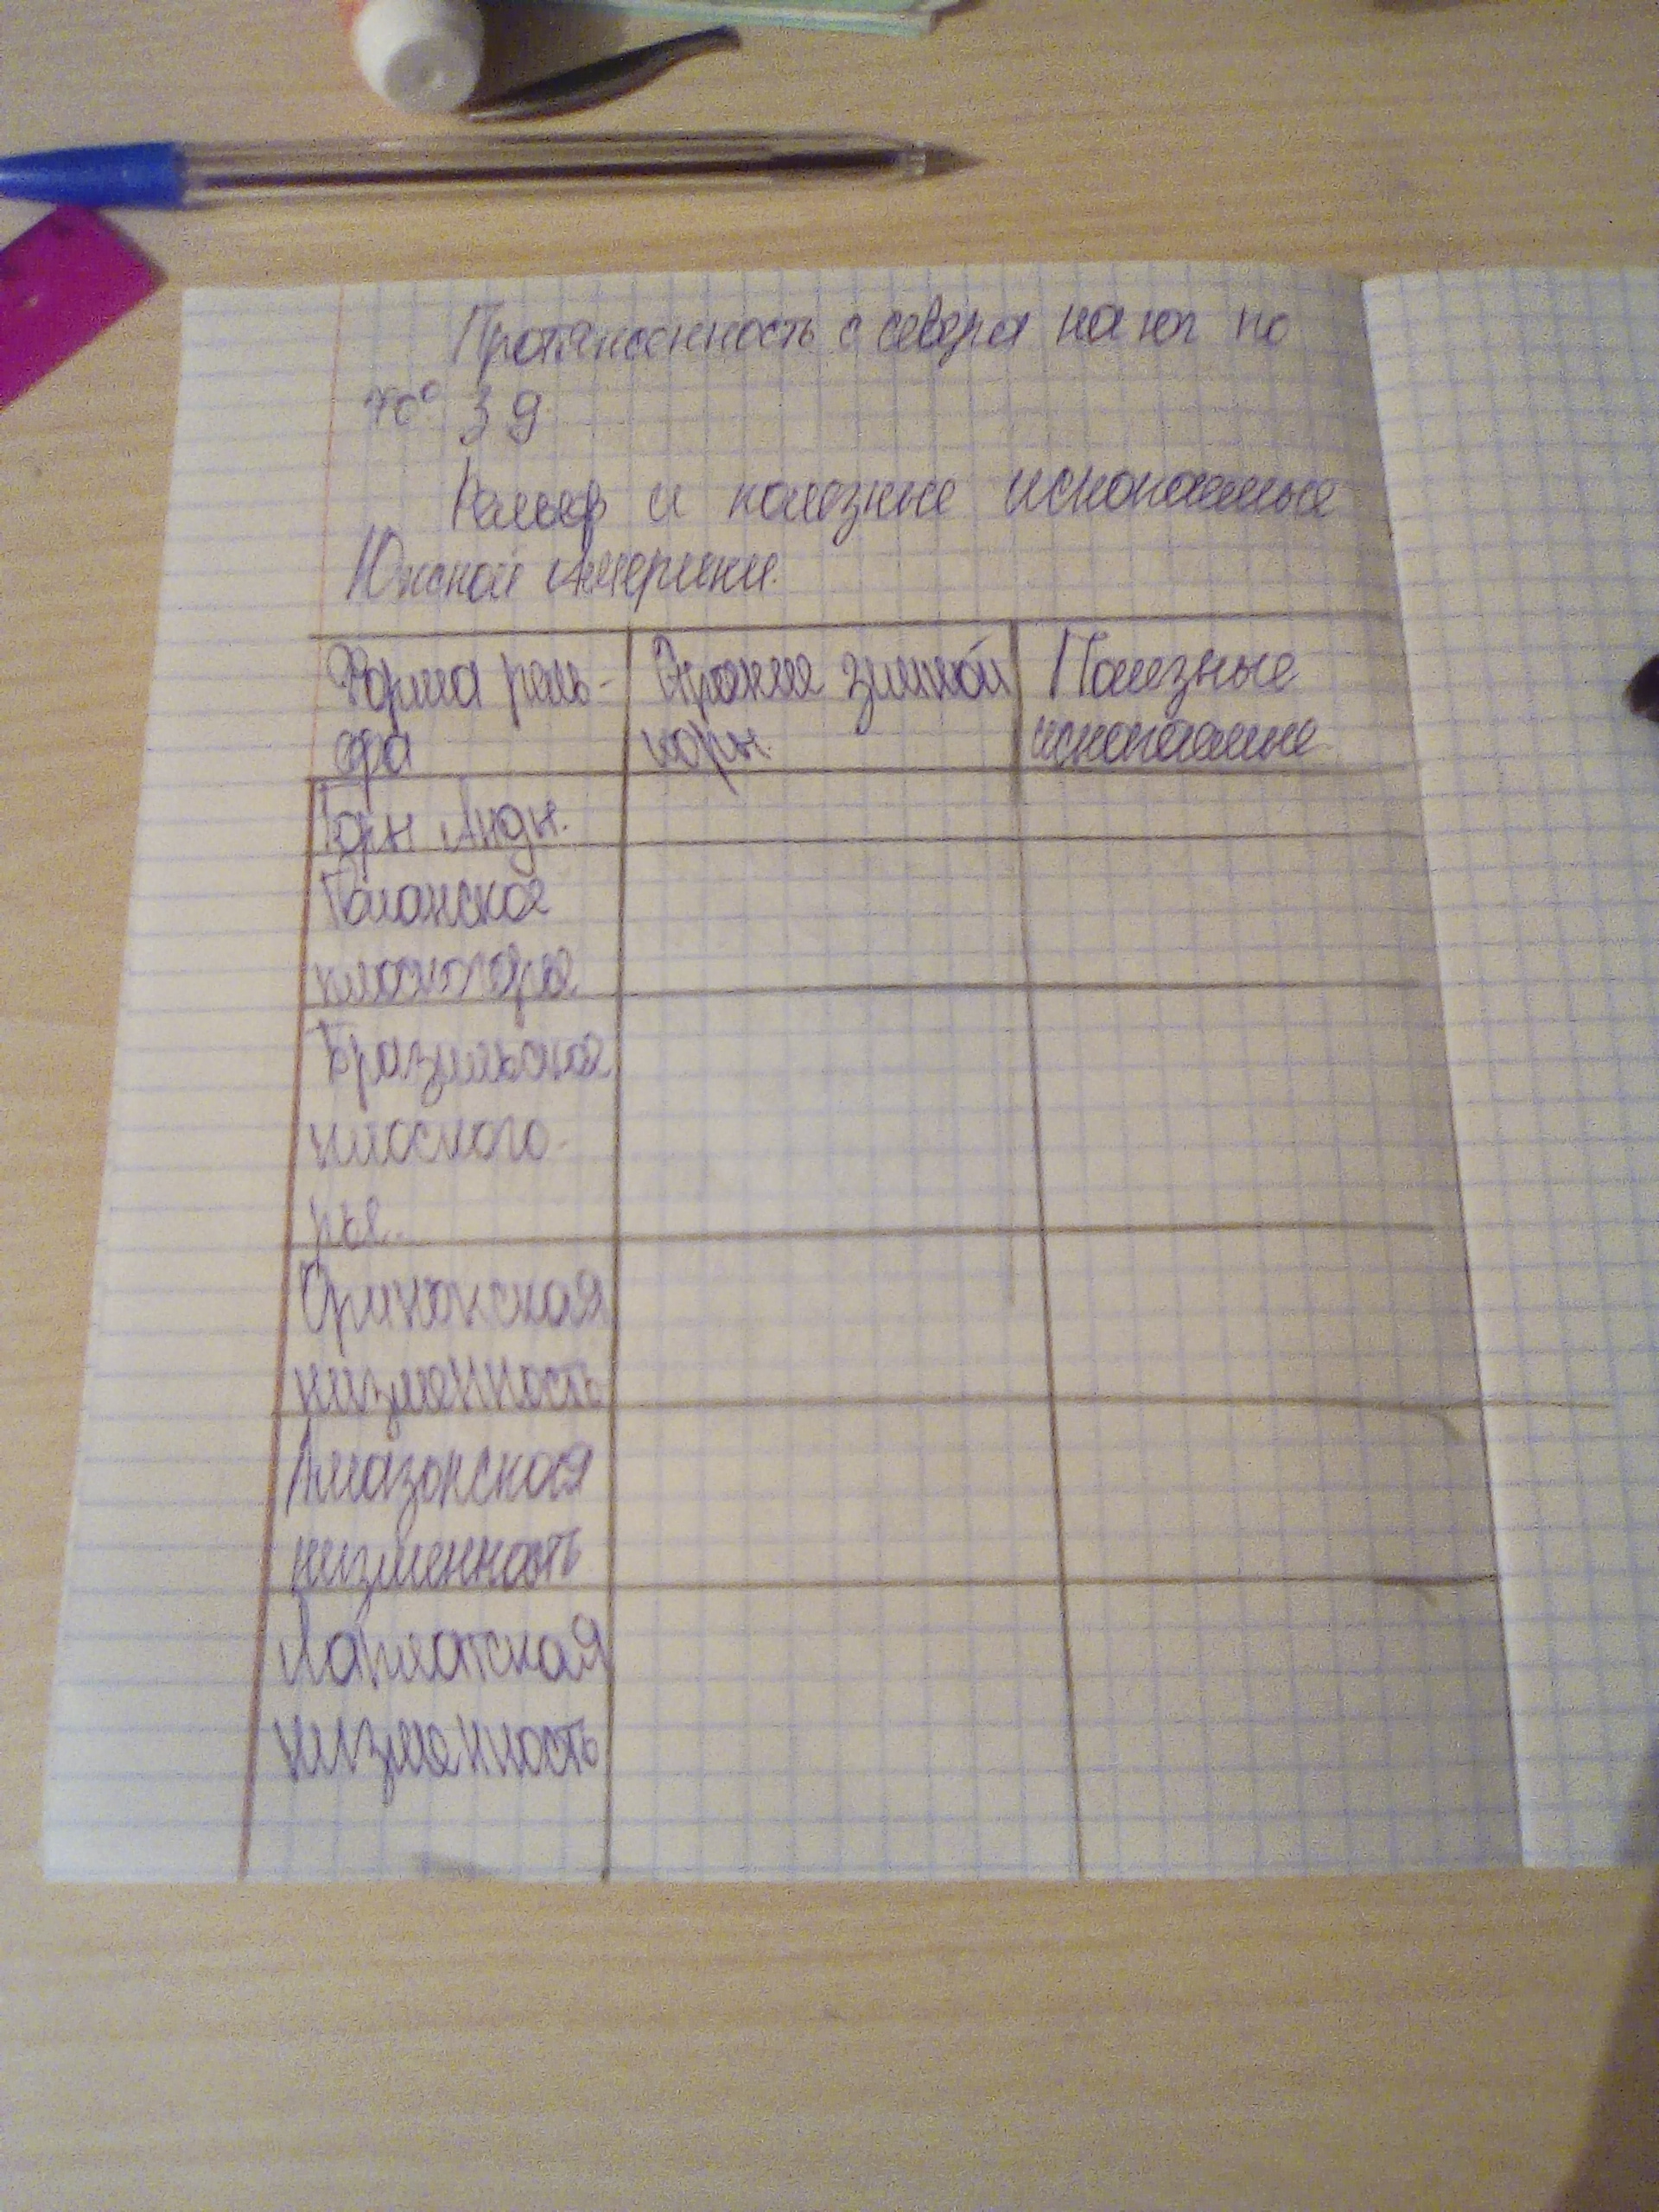 Протяженность с севера на юг по
70° з д.
Рельеф и полезные ископаемые
Южной Америки.
Форма рель-
ефа
Строение земной
коры.
Полезные
ископаемые
Горы Анды.
Гвианское
плоскогорье
Бразильское
плоского-
рье.
Оринокская
низменность
Амазонская
низменность
Лаплатская
низменность